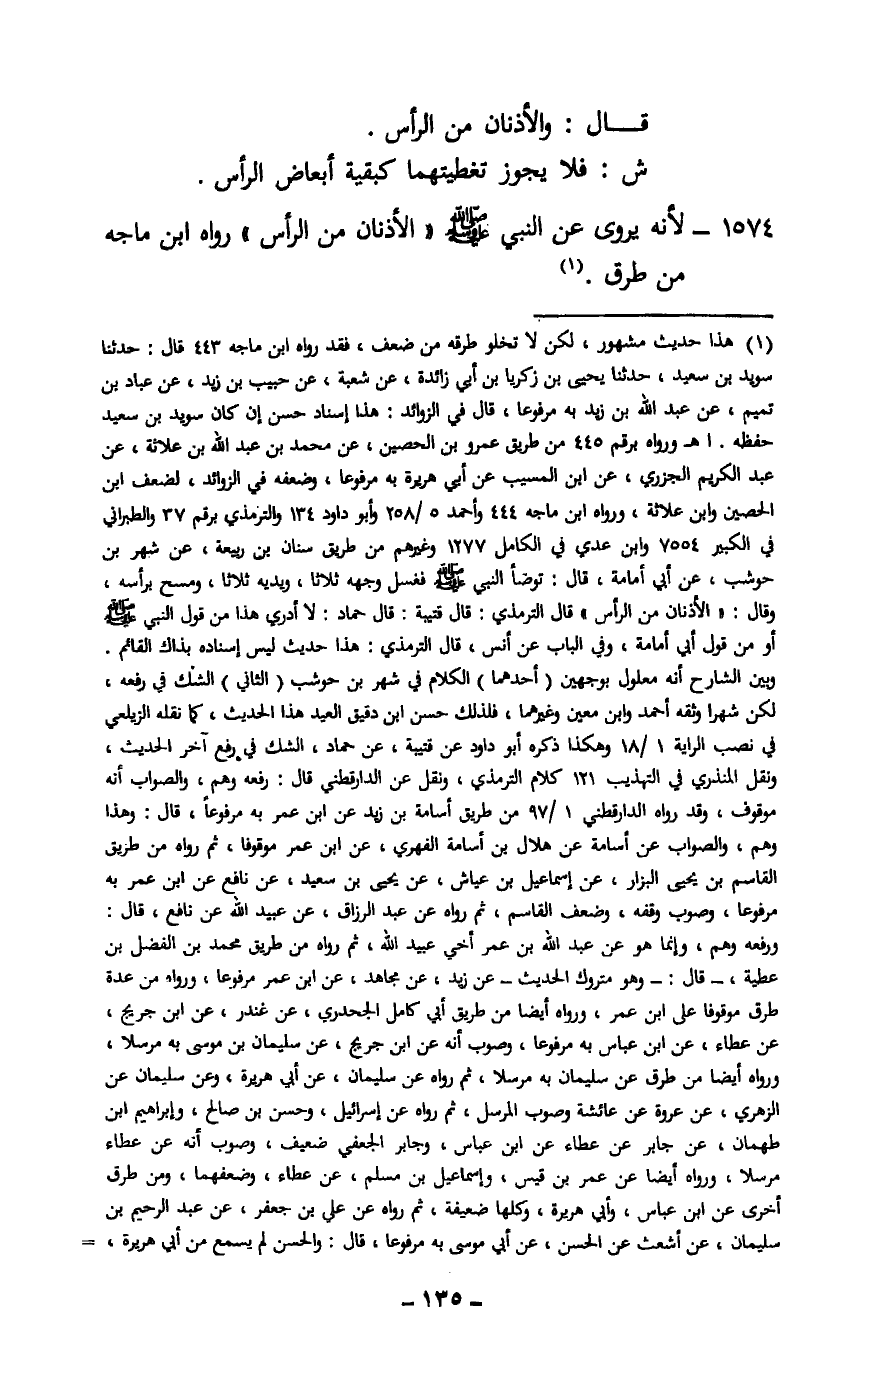 قــــال : والأذنان من الرأس .
ش : فلا يجوز تغطيتهما كبقية أبعاض الرأس .
١٥٧٤ ــ لأنه يروى عن النبي ﷺ « الأذنان من الرأس » رواه ابن ماجه
من طرق .(١)
(١) هذا حديث مشهور ، لكن لا تخلو طرقه من ضعف ، فقد رواه ابن ماجه ٤٤٣ قال : حدثنا
سويد بن سعيد ، حدثنا يحيى بن زكريا بن أبي زائدة ، عن شعبة ، عن حبيب بن زيد ، عن عباد بن
تميم ، عن عبد الله بن زيد به مرفوعا ، قال في الزوائد : هذا إسناد حسن إن كان سويد بن سعيد
حفظه . ا هـ ورواه برقم ٤٤٥ من طريق عمرو بن الحصين ، عن محمد بن عبد الله بن علاثة ، عن
عبد الكريم الجزري ، عن ابن المسيب عن أبي هريرة به مرفوعا ، وضعفه في الزوائد ، لضعف ابن
الحصين وابن علاثة ، ورواه ابن ماجه ٤٤٤ وأحمد ٥ /٢٥٨ وأبو داود ١٣٤ والترمذي برقم ٣٧ والطبراني
في الكبير ٧٥٥٤ وابن عدي في الكامل ١٢٧٧ وغيرهم من طريق سنان بن ربيعة ، عن شهر بن
حوشب ، عن أبي أمامة ، قال : توضأ النبي ﷺ فغسل وجهه ثلاثا ، ويديه ثلاثا ، ومسح برأسه ،
وقال : « الأذنان من الرأس » قال الترمذي : قال قتيبة : قال حماد : لا أدري هذا من قول النبي ﷺ
أو من قول أبي أمامة ، وفي الباب عن أنس ، قال الترمذي : هذا حديث ليس إسناده بذاك القائم .
وبين الشارح أنه معلول بوجهين ( أحدهما ) الكلام في شهر بن حوشب ( الثاني ) الشك في رفعه ،
لكن شهرا وثقه أحمد وابن معين وغيرهما ، فلذلك حسن ابن دقيق العيد هذا الحديث ، كما نقله الزيلعي
في نصب الراية ١ /١٨ وهكذا ذكره أبو داود عن قتيبة ، عن حماد ، الشك في رفع آخر الحديث ،
ونقل المنذري في التهذيب ١٢١ كلام الترمذي ، ونقل عن الدارقطني قال : رفعه وهم ، والصواب أنه
موقوف ، وقد رواه الدارقطني ١ /٩٧ من طريق أسامة بن زيد عن ابن عمر به مرفوعاً ، قال : وهذا
وهم ، والصواب عن أسامة عن هلال بن أسامة الفهري ، عن ابن عمر موقوفا ، ثم رواه من طريق
القاسم بن يحيى البزار ، عن إسماعيل بن عياش ، عن يحيى بن سعيد ، عن نافع عن ابن عمر به
مرفوعا ، وصوب وقفه ، وضعف القاسم ، ثم رواه عن عبد الرزاق ، عن عبيد الله عن نافع ، قال :
ورفعه وهم ، وإنما هو عن عبد الله بن عمر أخي عبيد الله ، ثم رواه من طريق محمد بن الفضل بن
عطية ، ــ قال : ــ وهو متروك الحديث ــ عن زيد ، عن مجاهد ، عن ابن عمر مرفوعا ، ورواه من عدة
طرق موقوفا على ابن عمر ، ورواه أيضا من طريق أبي كامل الجحدري ، عن غندر ، عن ابن جريج ،
عن عطاء ، عن ابن عباس به مرفوعا ، وصوب أنه عن ابن جريج ، عن سليمان بن موسى به مرسلا ،
ورواه أيضا من طرق عن سليمان به مرسلا ، ثم رواه عن سليمان ، عن أبي هريرة ، وعن سليمان عن
الزهري ، عن عروة عن عائشة وصوب المرسل ، ثم رواه عن إسرائيل ، وحسن بن صالح ، وإبراهيم ابن
طهمان ، عن جابر عن عطاء عن ابن عباس ، وجابر الجعفي ضعيف ، وصوب أنه عن عطاء
مرسلا ، ورواه أيضا عن عمر بن قيس ، وإسماعيل بن مسلم ، عن عطاء ، وضعفهما ، ومن طرق
أخرى عن ابن عباس ، وأبي هريرة ، وكلها ضعيفة ، ثم رواه عن علي بن جعفر ، عن عبد الرحيم بن
سليمان ، عن أشعث عن الحسن ، عن أبي موسى به مرفوعا ، قال : والحسن لم يسمع من أبي هريرة ، =
ــ ١٣٥ ــ